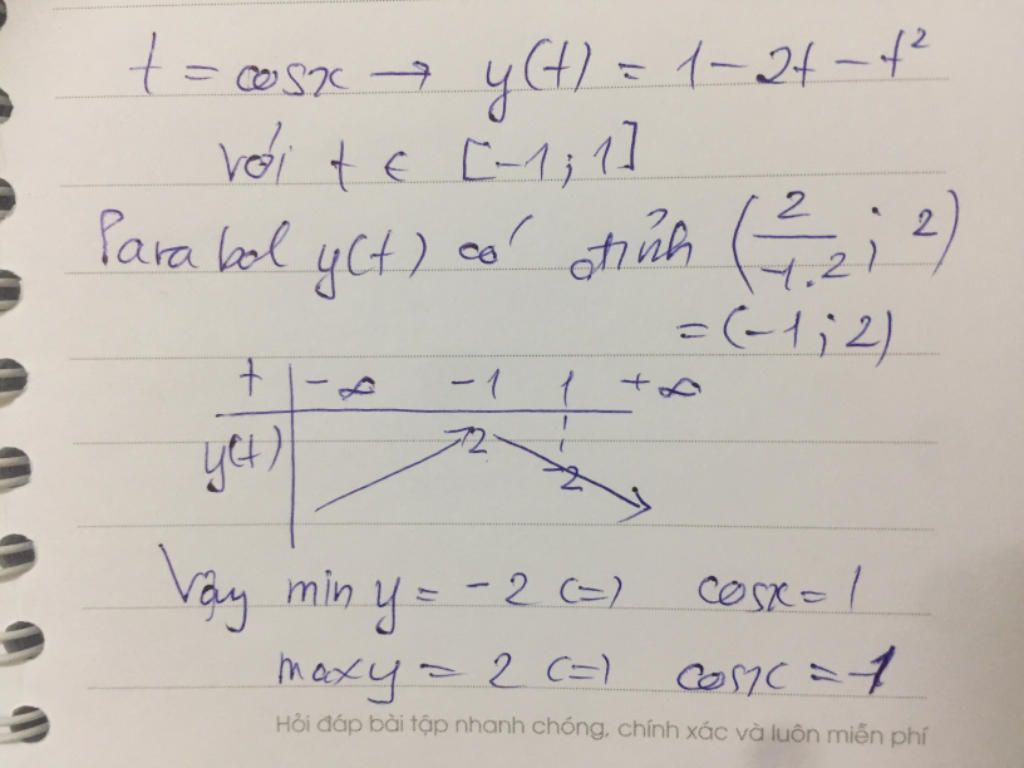 t = cosx → y(t) = 1 - 2t - t²
với t ∈ [-1; 1]
Parabol y(t) có đỉnh (2/-1.2; 2)
= (-1; 2)
t | -∞ -1 1 +∞
y(t) | 2 -2
Vậy min y = -2 <=> cosx = 1
max y = 2 <=> cosx = -1
Hỏi đáp bài tập nhanh chóng, chính xác và luôn miễn phí